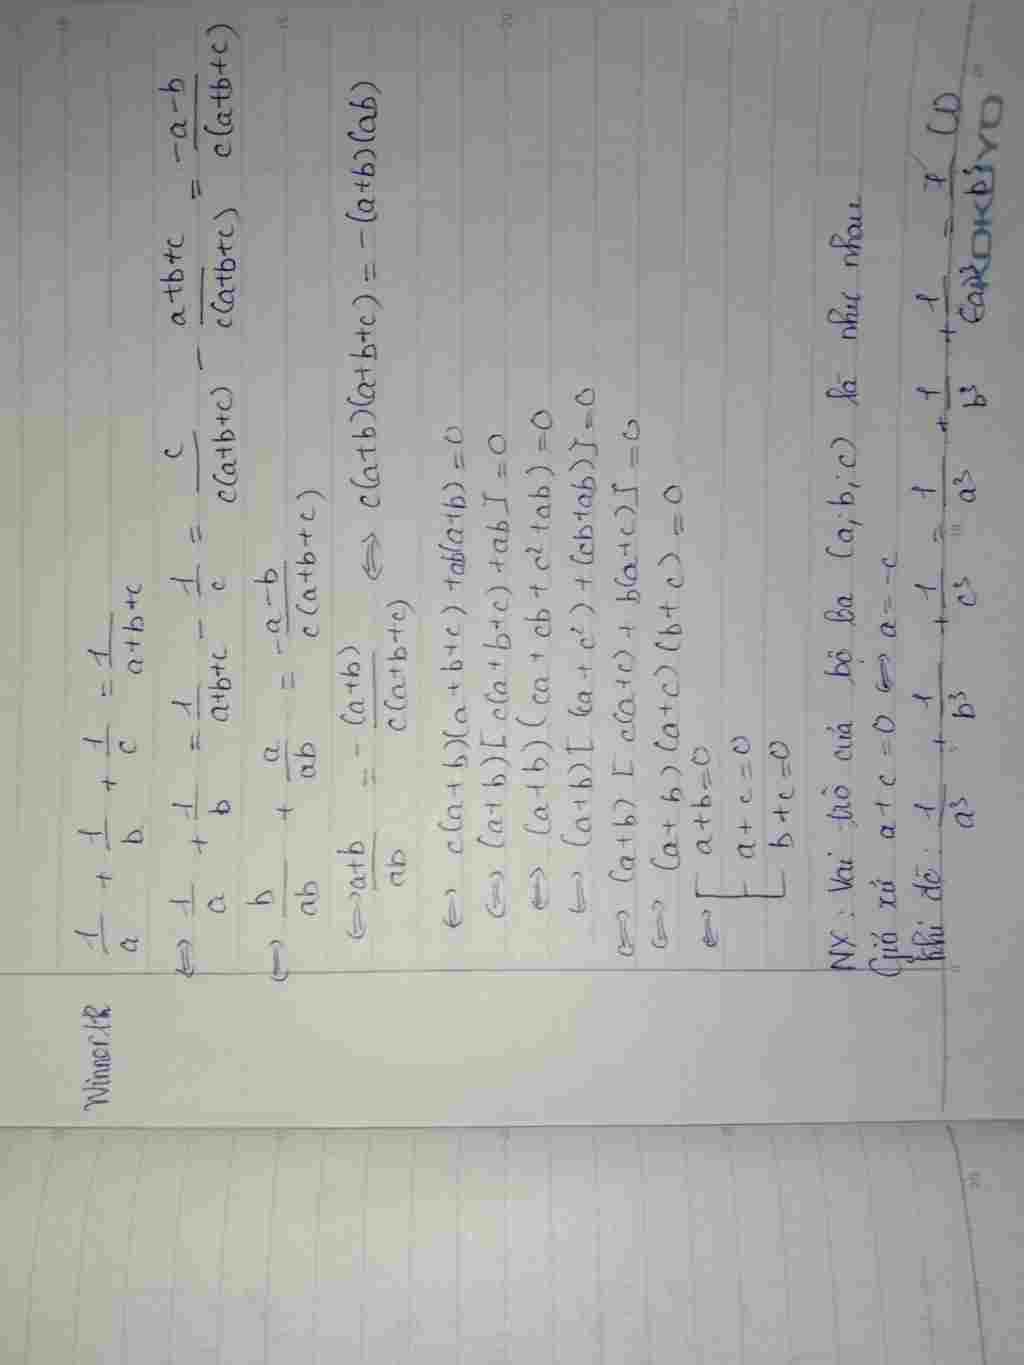 Winner.lk
1/a + 1/b + 1/c = 1/(a+b+c)
⇔ 1/a + 1/b = 1/(a+b+c) - 1/c = c/(c(a+b+c)) - (a+b+c)/(c(a+b+c)) = (-a-b)/(c(a+b+c))
⇔ b/ab + a/ab = (-a-b)/(c(a+b+c))
⇔ (a+b)/ab = -(a+b)/(c(a+b+c)) ⇔ c(a+b)(a+b+c) = -(a+b)(ab)
⇔ c(a+b)(a+b+c) + ab(a+b) = 0
⇔ (a+b)[c(a+b+c)+ab] = 0
⇔ (a+b)(ca+cb+c²+ab) = 0
⇔ (a+b)[(ca+c²)+(cb+ab)] = 0
⇔ (a+b)[c(a+c)+b(a+c)] = 0
⇔ (a+b)(a+c)(b+c) = 0
⇔ [ a+b=0
a+c=0
b+c=0
NX: Vai trò của bộ ba (a;b;c) là như nhau
Giả sử a+c=0 ⇔ a=-c
khi đó: 1/a³ + 1/b³ + 1/c³ = 1/a³ + 1/b³ + 1/(-a)³ = 1/b³ (1)
KOKUYO